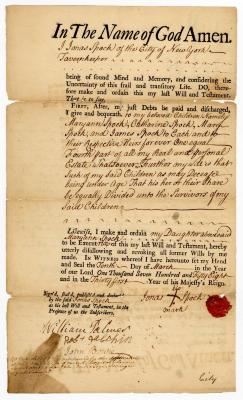 In The Name of God Amen.
I Jonas Spock of the City of New York
Tavernkeeper
being of found Mind and Memory, and considering the
Uncertainty of this frail and transitory Life. DO, there-
fore make and ordain this my last Will and Testament.
That is to say,
FIRST, After, my just Debts be paid and discharged,
I give and bequeath, to my beloved Children, namely
Maryann Spock, Catharina Spock, Mary
Spock, and James Spock to Each and to
their Respective Heirs for ever One equal
Fourth part of all my Real and personal
Estate, whatsoever. Further my will is that
Such of my Said Children as may Decease
being under Age That his or their Share
be equally Divided unto the Survivors of my
Said Children
Likewise, I make and ordain my Daughter abovesaid
Maryann Spock
to be Execut of this my last Will and Testament, hereby
utterly disallowing and revoking all former Wills by me
made. In WITNESS whereof I have hereunto set my Hand
and Seal the Tenth Day of March in the Year
of our Lord One Thousand Seven Hundred and Fifty Eight
and in the Thirty first Year of his Majesty's Reign.
Sign'd, seal'd, publish'd and declar'd
by the said Jonas Spock
as his last Will and Testament, in the
Presence of us the Subscribers,
his
Jonas Spock
mark
William
John
City